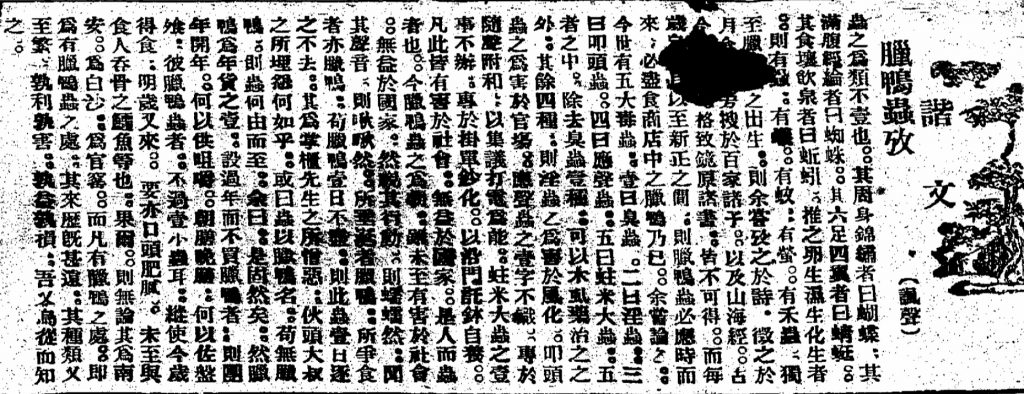 諧文
臘鴨蟲攷
(諷聲)
蟲之爲類不壹也。其周身錦繡者曰蝴蝶。其
滿腹經綸者曰蜘蛛。其六足四翼者曰蜻蜓。
其食壤飲泉者曰蚯蚓。推之卵生濕生化生者
則有。有。有蚊。有螢。有禾蟲。獨
至臘之出生。則余嘗攷之於詩。徵之於
月旁搜於百家諸子。以及山海經。占
今格致鏡原諸書。皆不可得。而每
歲以至新正之間。則臘鴨蟲必應時而
來。必盡食商店中之臘鴨乃已。余嘗論之。
今世有五大毒蟲。壹曰臭蟲。二曰淫蟲。三
曰叩頭蟲。四曰應聲蟲。五曰蛀米大蟲。五
者之中。除去臭蟲壹種。可以木虱藥治之之
外。其餘四種。則淫蟲之爲害於風化。叩頭
蟲之爲害於官塲。應聲蟲之壹字不識。專於
隨聲附和。以集議打電爲能。蛀米大蟲之壹
事不辦。專於掛單鈔化。以沿門託鉢自豢。
凡此皆有害於社會。無益於國家。是人而蟲
者也。今臘鴨蟲之爲物。雖未至有害於社會
。無益於國家。然觀其行動。則蠕蠕然。聞
其聲音。則啾啾然。所者臘鴨。所爭食
者亦臘鴨。苟臘鴨壹日不盡。則此蟲壹日逐
之不去。其爲掌櫃先生之所憎惡。伙頭大叔
之所埋怨何如乎。或曰蟲以臘鴨名。苟無臘
鴨。則蟲何由而至。余曰。是固然矣。然臘
鴨爲年貨之壹。設過年而不買臘鴨者。則團
年開年。何以供咀嚼。朝膳晚膳。何以佐盤
飱。彼臘鴨蟲者。不過壹小蟲耳。縱使今歲
得食。明歲又來。要亦口頭肥膩。未至與
食人吞骨之鱷魚等也。果爾。則無論其爲南
安。爲白沙。爲官窰。而凡有臘鴨之處。即
爲有臘鴨蟲之處。其來歷旣甚遠。其種類又
至繁。孰利孰害。孰益孰損。吾又烏從而知
之。